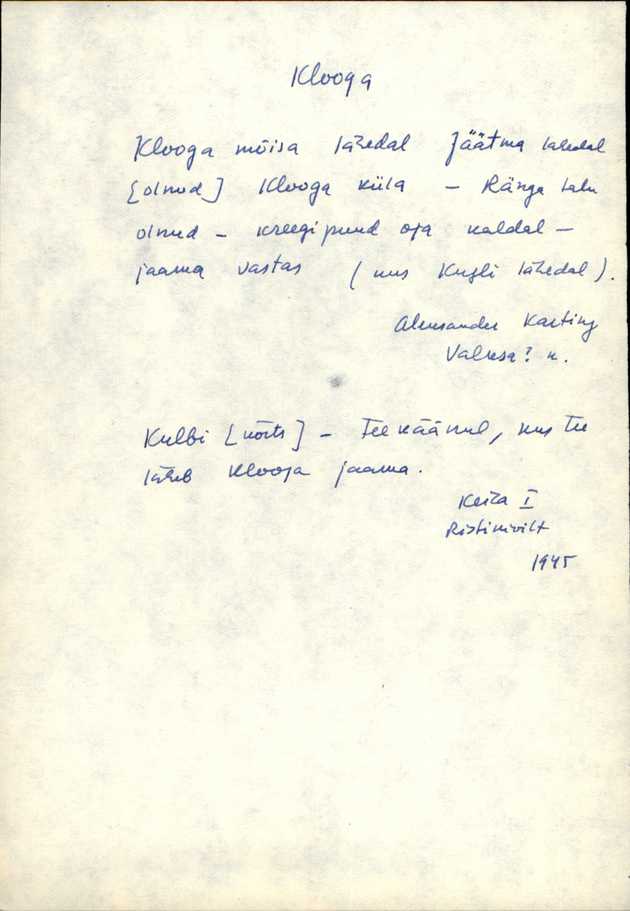 Klooga
Klooga mõisa lähedal Jäätma lähedal
[olnud] Klooga küla – Ränga talu
olnud – kreegipuud oja kaldal –
jaama vastas (kus Kuhli lähedal).
Aleksander Karting
Valkse? k.
Kulbi [kõrts] – Teekäänul, kus tee
läheb Klooga jaama.
Keila I
Ristikivilt
1945